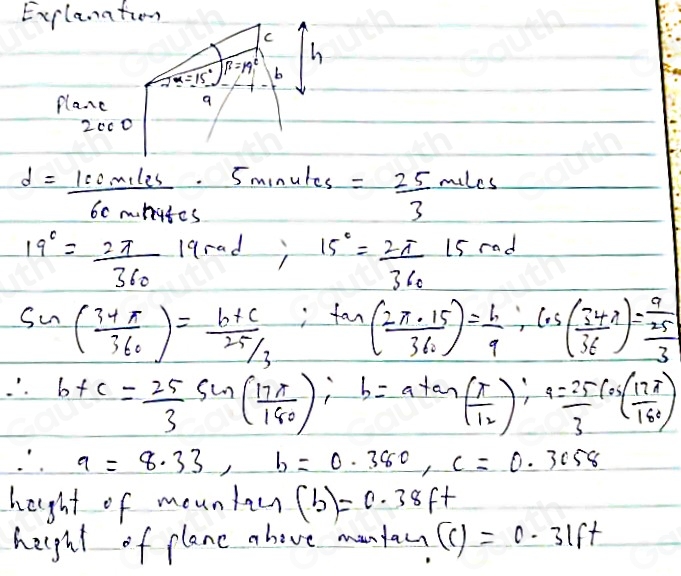 Explanation
c
h
α=15° β=19° b
a
plane
2000
d = 100 miles / 60 minutes . 5 minutes = 25/3 miles
19° = 2π/360 19 rad ; 15° = 2π/360 15 rad
Sin (34π/360) = b+c / 25/3 ; tan (2π.15/360) = b/a ; Cos (34π/36) = a / 25/3
∴ b+c = 25/3 Sin (17π/180) ; b = a tan (π/12) ; a = 25/3 Cos (17π/180)
∴ a = 8.33 , b = 0.380 , c = 0.3058
height of mountain (b) = 0.38 ft
height of plane above mountain (c) = 0.31 ft